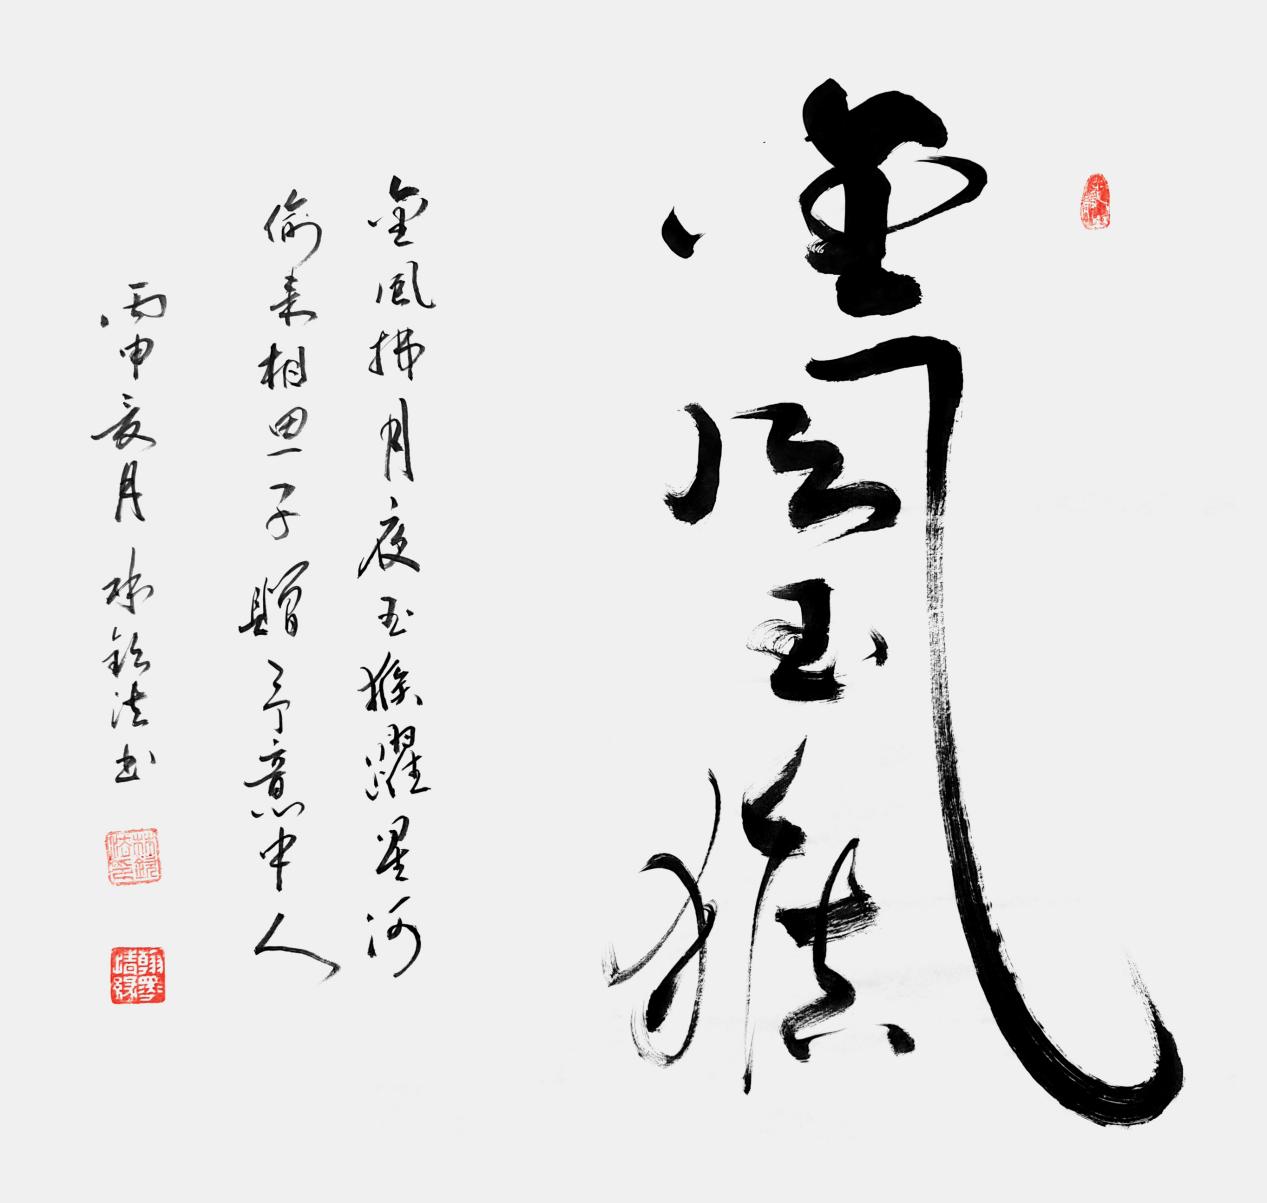 金風玉猴
金風拂月夜玉猴躍星河
偷来相思一子贈予意中人
丙申夏月林钦法书